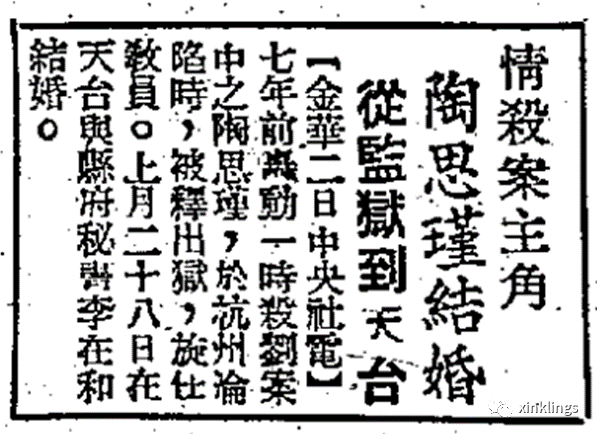 情殺案主角
陶思瑾結婚
從監獄到天台
【金華二日中央社電】
七年前轟動一時殺劉案
中之陶思瑾，於杭州淪
陷時，被釋出獄，旋仕
敎員。上月二十八日在
天台與縣府秘書李在和
結婚。
xinklings